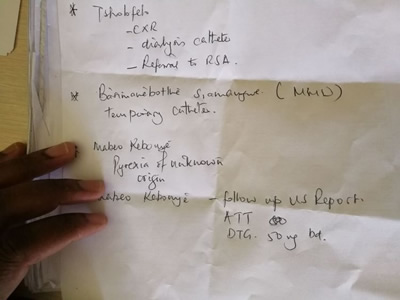 * Tshobfeh
- CXR
- dialysis cathete
- Referral to RSA.
* (MMW)
temporary catheter.
* Mabeo Kebonyé
Pyrexia of unknown
origin
mabeo Kebonyé - follow up US Report.
ATT
DTG. 50mg bd.